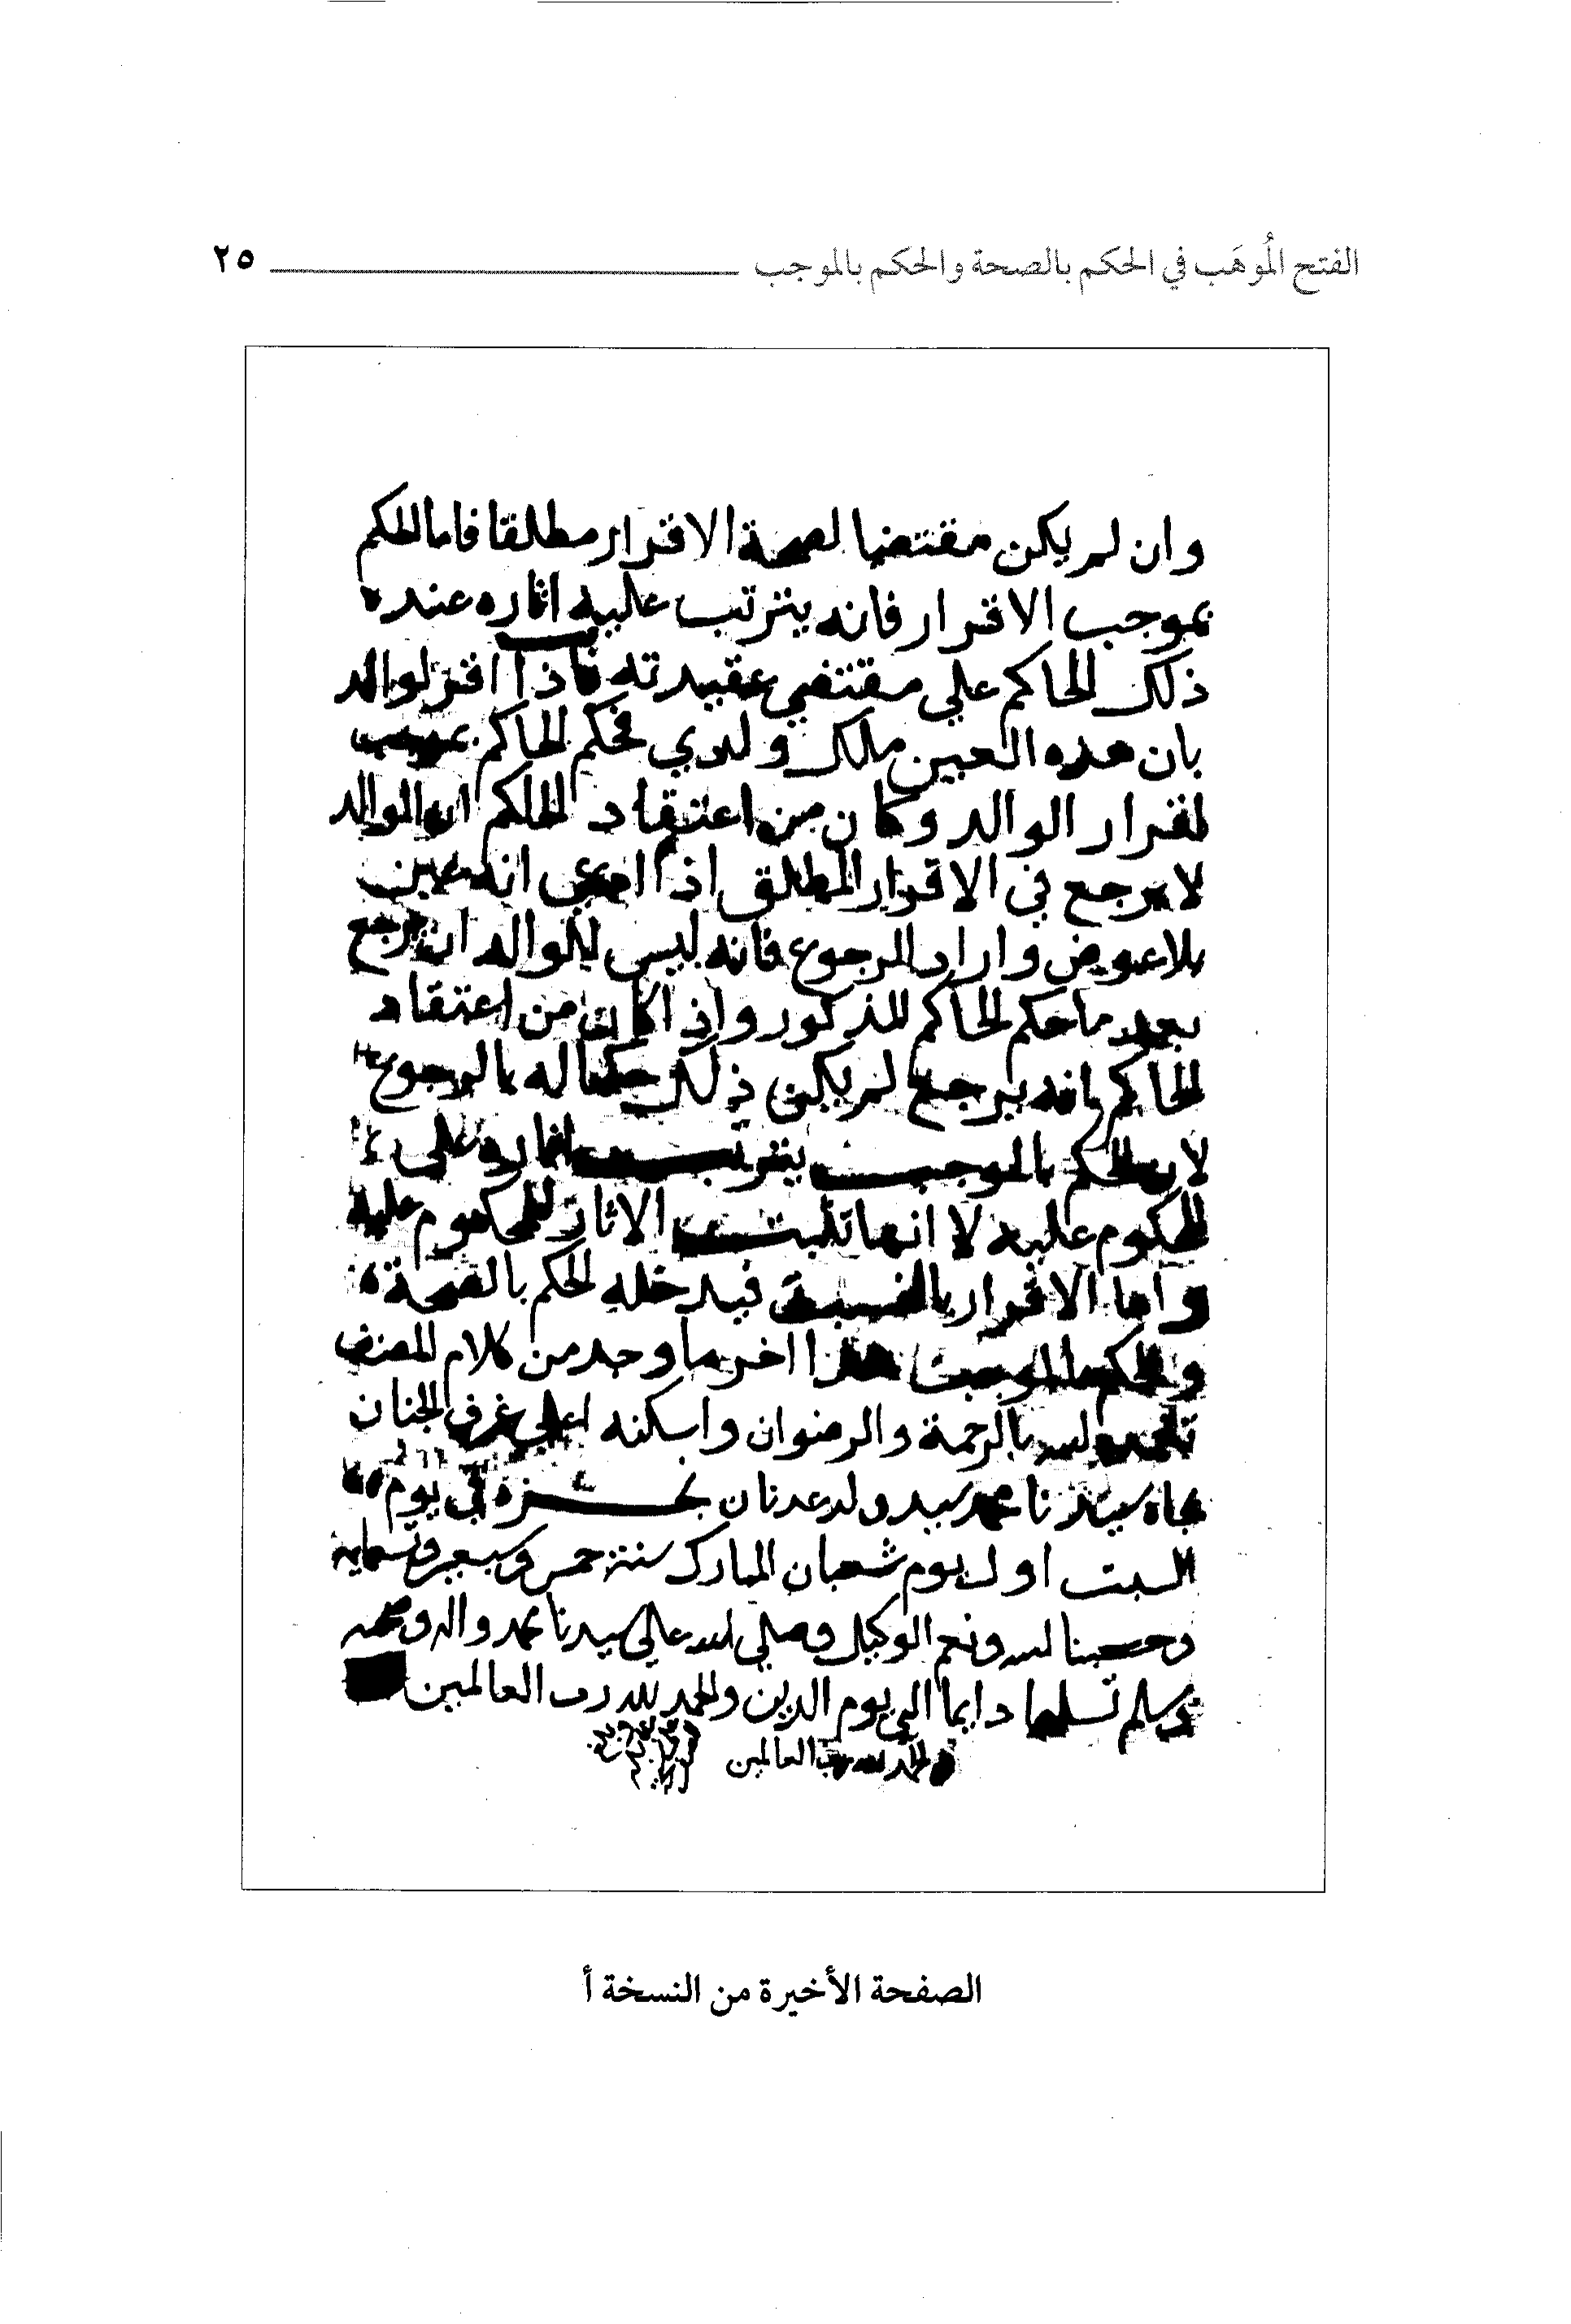 الفتح المُوهَب في الحكم بالصحة والحكم بالموجب ٢٥
وان لم يكن مقتضيا لصحة الاقرار مطلقا فاما الحكم
بموجب الاقرار فانه يترتب عليه اثاره عند
ذلك الحاكم علي مقتضي عقيدته فاذا اقر لوالد
بان هذه العين ملك ولدي فحكم الحاكم بموجب
اقرار الوالد وكان من اعتقاد الحاكم ان الوالد
لا يرجع في الاقرار المطلق اذا ادعي انه عين
بلا عوض واراد الرجوع فانه ليس للوالد ان يرجع
بعد ما حكم الحاكم المذكور واذا كان من اعتقاد
الحاكم بانه يرجع لم يكن ذلك حكما له بالرجوع
لان الحكم بالموجب يترتب اثاره علي
المحكوم عليه لا انها تثبت الاثار للمحكوم عليه
واما الاقرار بالنسبة فيدخله الحكم بالصحة
والحكم بالموجب هذا اخر ما وجد من كلام المصنف
تغمده الله بالرحمة والرضوان واسكنه اعلي غرف الجنان
بجاه سيدنا محمد سيد ولد عدنان في يوم
السبت اول يوم شعبان المبارك سنة خمس وسبعين وتسماية
وحسبنا الله ونعم الوكيل وصلي الله علي سيدنا محمد واله وصحبه
وسلم تسليما دايما الي يوم الدين والحمد لله رب العالمين
والحمد لله رب العالمين
الصفحة الأخيرة من النسخة أ